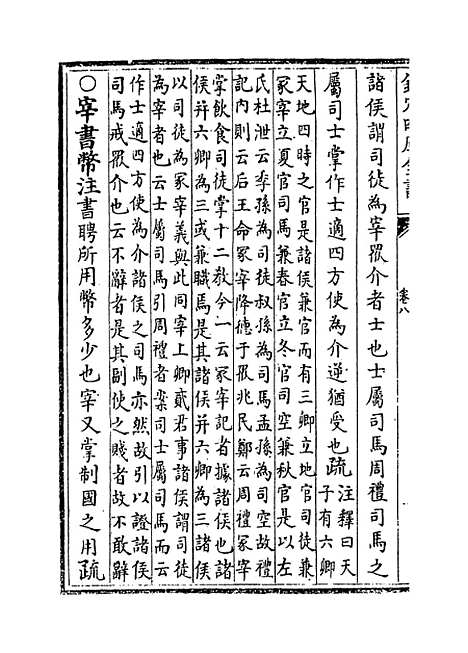 欽定四庫全書
卷八
諸侯謂司徒為宰眾介者士也士屬司馬周禮司馬之
屬司士掌作士適四方使為介逆猶受也疏
注釋曰天
子有六卿
天地四時之官是諸侯兼官而有三卿立地官司徒兼
冢宰立夏官司馬兼春官立冬官司空兼秋官是以左
氏杜泄云季孫為司徒叔孫為司馬孟孫為司空故禮
記內則云后王命冢宰降德于眾兆民鄭云周禮冢宰
掌飲食司徒掌十二教今一云冢宰記者據諸侯也諸
侯并六卿為三或兼職焉是其諸侯并六卿為三諸侯
以司徒為冢宰義與此同宰上卿貳君事諸侯謂司徒
為宰者也云士屬司馬引周禮者案司士屬司馬而云
作士適四方使為介諸侯之司馬亦然故引以證諸侯
司馬戒眾介也云不辭者是其副使之賤者故不敢辭
○宰書幣注書聘所用幣多少也宰又掌制國之用疏